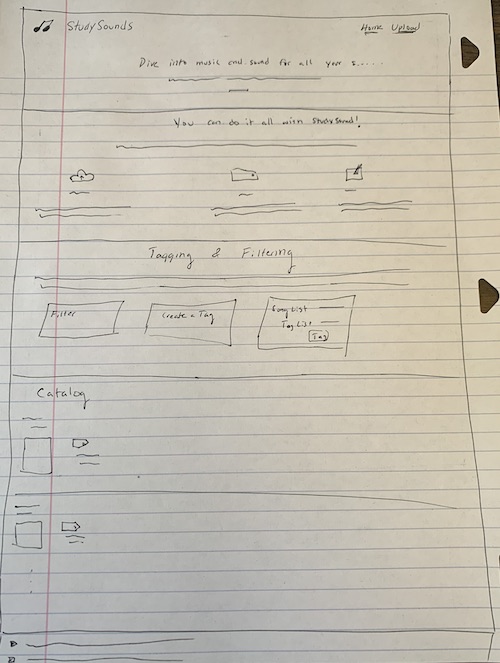 StudySounds
Home Upload
Dive into music and sound for all your s.....
You can do it all with StudySound!
Tagging & Filtering
Filter
Create a Tag
Song List
Tag List
Tag
Catalog